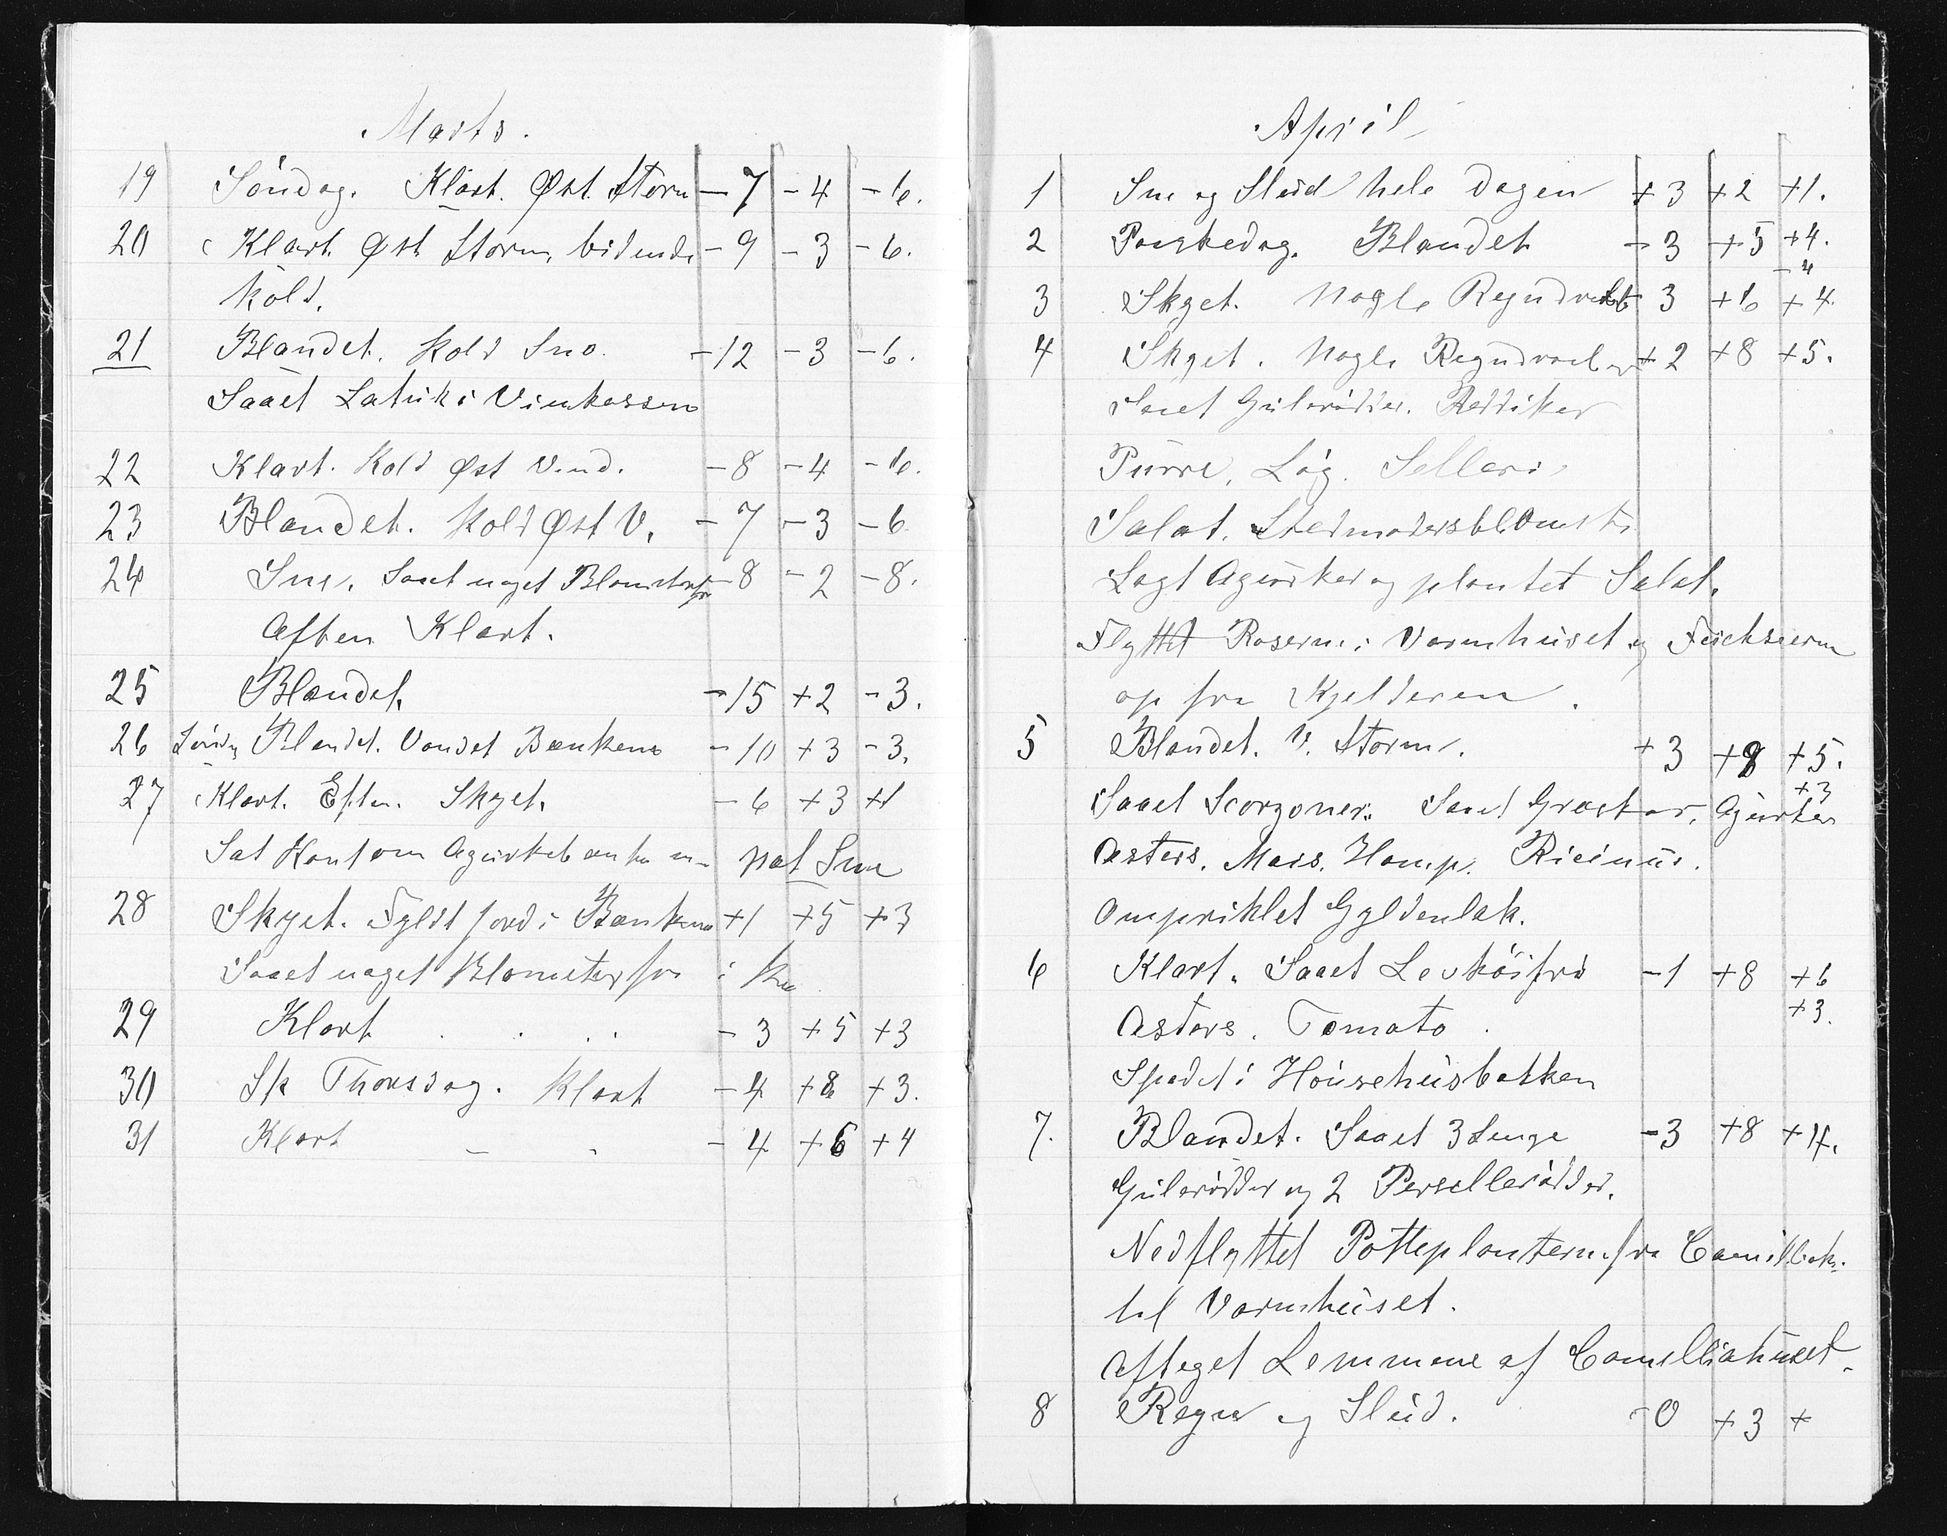 Marts.
19 Söndag. Klart. Øst. Storm - 7 - 4 - 6.
20 Klart. Øst Storm, bidende - 9 - 3 - 6.
kold.
21 Blandet. Kold Sno. - 12 - 3 - 6.
Saaet Latuk i Vinkassen
22 Klart. Kold Øst Vind. - 8 - 4 - 6.
23 Blandet. Kold Øst V. - 7 - 3 - 6
24 Sne, Saaet noget Blomsterfrø - 8 - 2 - 8.
Aften Klart.
25 Blandet. - 15 + 2 - 3.
26 Blandet. Vandet Bænkene - 10 + 3 - 3.
27 Klart. Efterm. Skyet. - 6 + 3 + 1
Sat Kant om Agurkebænken - Nat Sne
28 Skyet. Fyldt Jord i Bænkene + 1 + 5 + 3
Saaet noget Blomsterfrø i
29 Klart - 3 + 5 + 3
30 Sk Thorsdag. Klart - 4 + 8 + 3.
31 Klart - 4 + 6 + 4
April
1 Sne og Slud hele Dagen + 3 + 2 + 1.
2 Paaskedag. Blandet - 3 + 5 + 4.
- 4
3 Skyet. Nogle Regndraaber 3 + 6 + 4
4 Skyet. Nogle Regndraaber + 2 + 8 + 5.
Saaet Gulerødder. Reddiker
Purre, Løg. Selleri
Salat. Stedmodersblomster
Lagt Agurker og plantet Salat.
Flyttet Roserne i Varmhuset og Fuchsierne
op fra Kjelderen.
5 Blandet. V. Storm. + 3 + 8 + 5.
+ 3
Saaet Scorzoner. Saaet Græskar, Agurker
Asters. Mais. Hamp. Ricinus.
Ompriklet Gyldenlak.
6 Klart. Saaet Levköifrö - 1 + 8 + 6
+ 3.
Asters. Tomato.
Spadet i Hönsehusbakken
7. Blandet. Saaet 3 Senge - 3 + 8 + 4.
Gulerødder og 2 Persillerødder.
Nedflyttet Potteplanterne fra
til Varmhuset.
Afteget Lemmene af Camelliahuset.
8 Regn og Slud. - 0 + 3 +